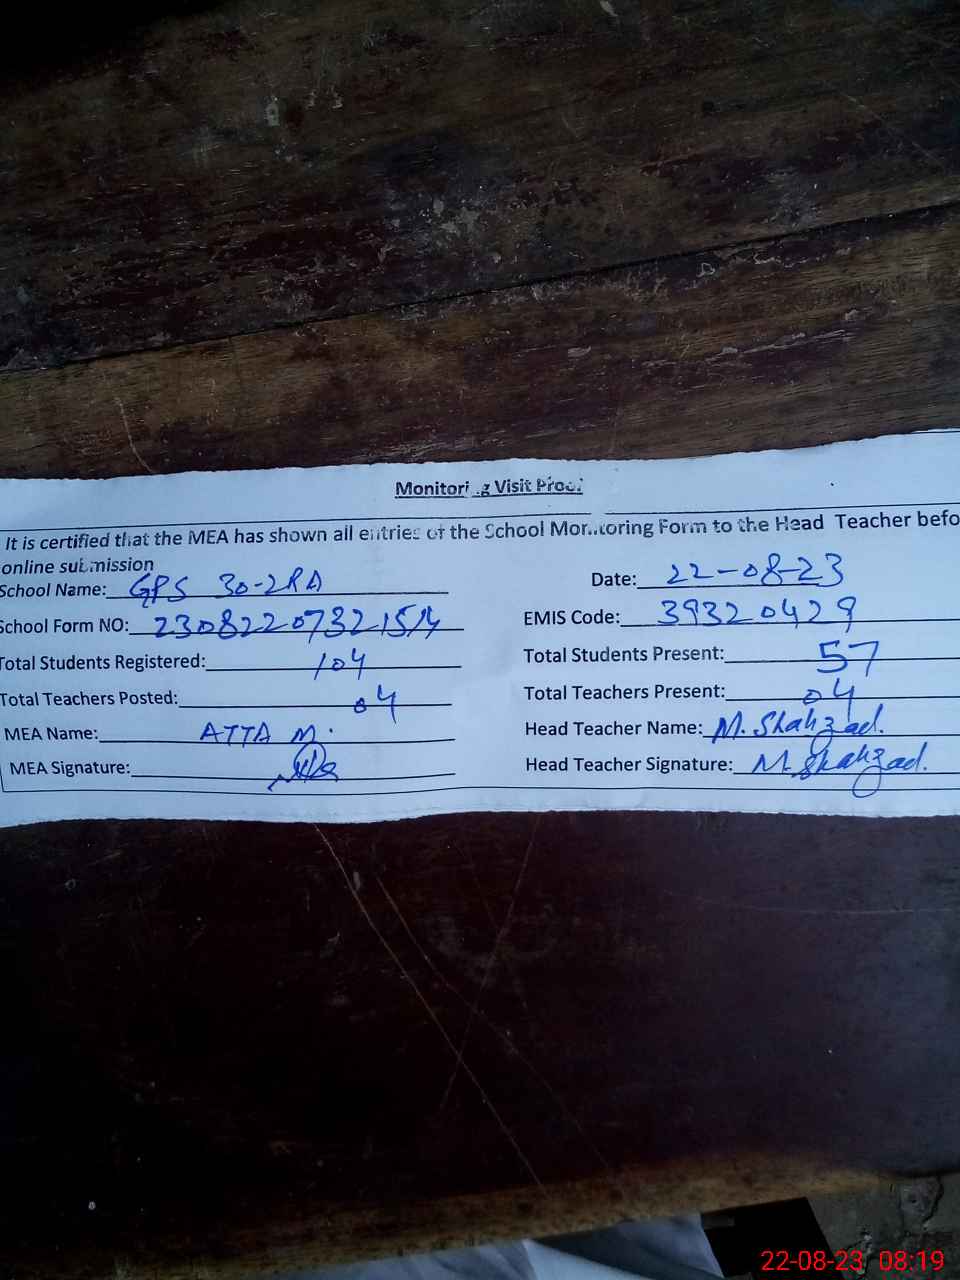 Monitoring Visit Proof
It is certified that the MEA has shown all entries of the School Monitoring Form to the Head Teacher befo
online submission
School Name: GPS 30-2RA Date: 22-08-23
School Form NO: EMIS Code: 39320429
Total Students Registered: 104 Total Students Present: 57
Total Teachers Posted: 04 Total Teachers Present: 04
MEA Name: ATTA M. Head Teacher Name: M. Shahzad.
MEA Signature: Head Teacher Signature: M. Shahzad.
22-08-23 08:19